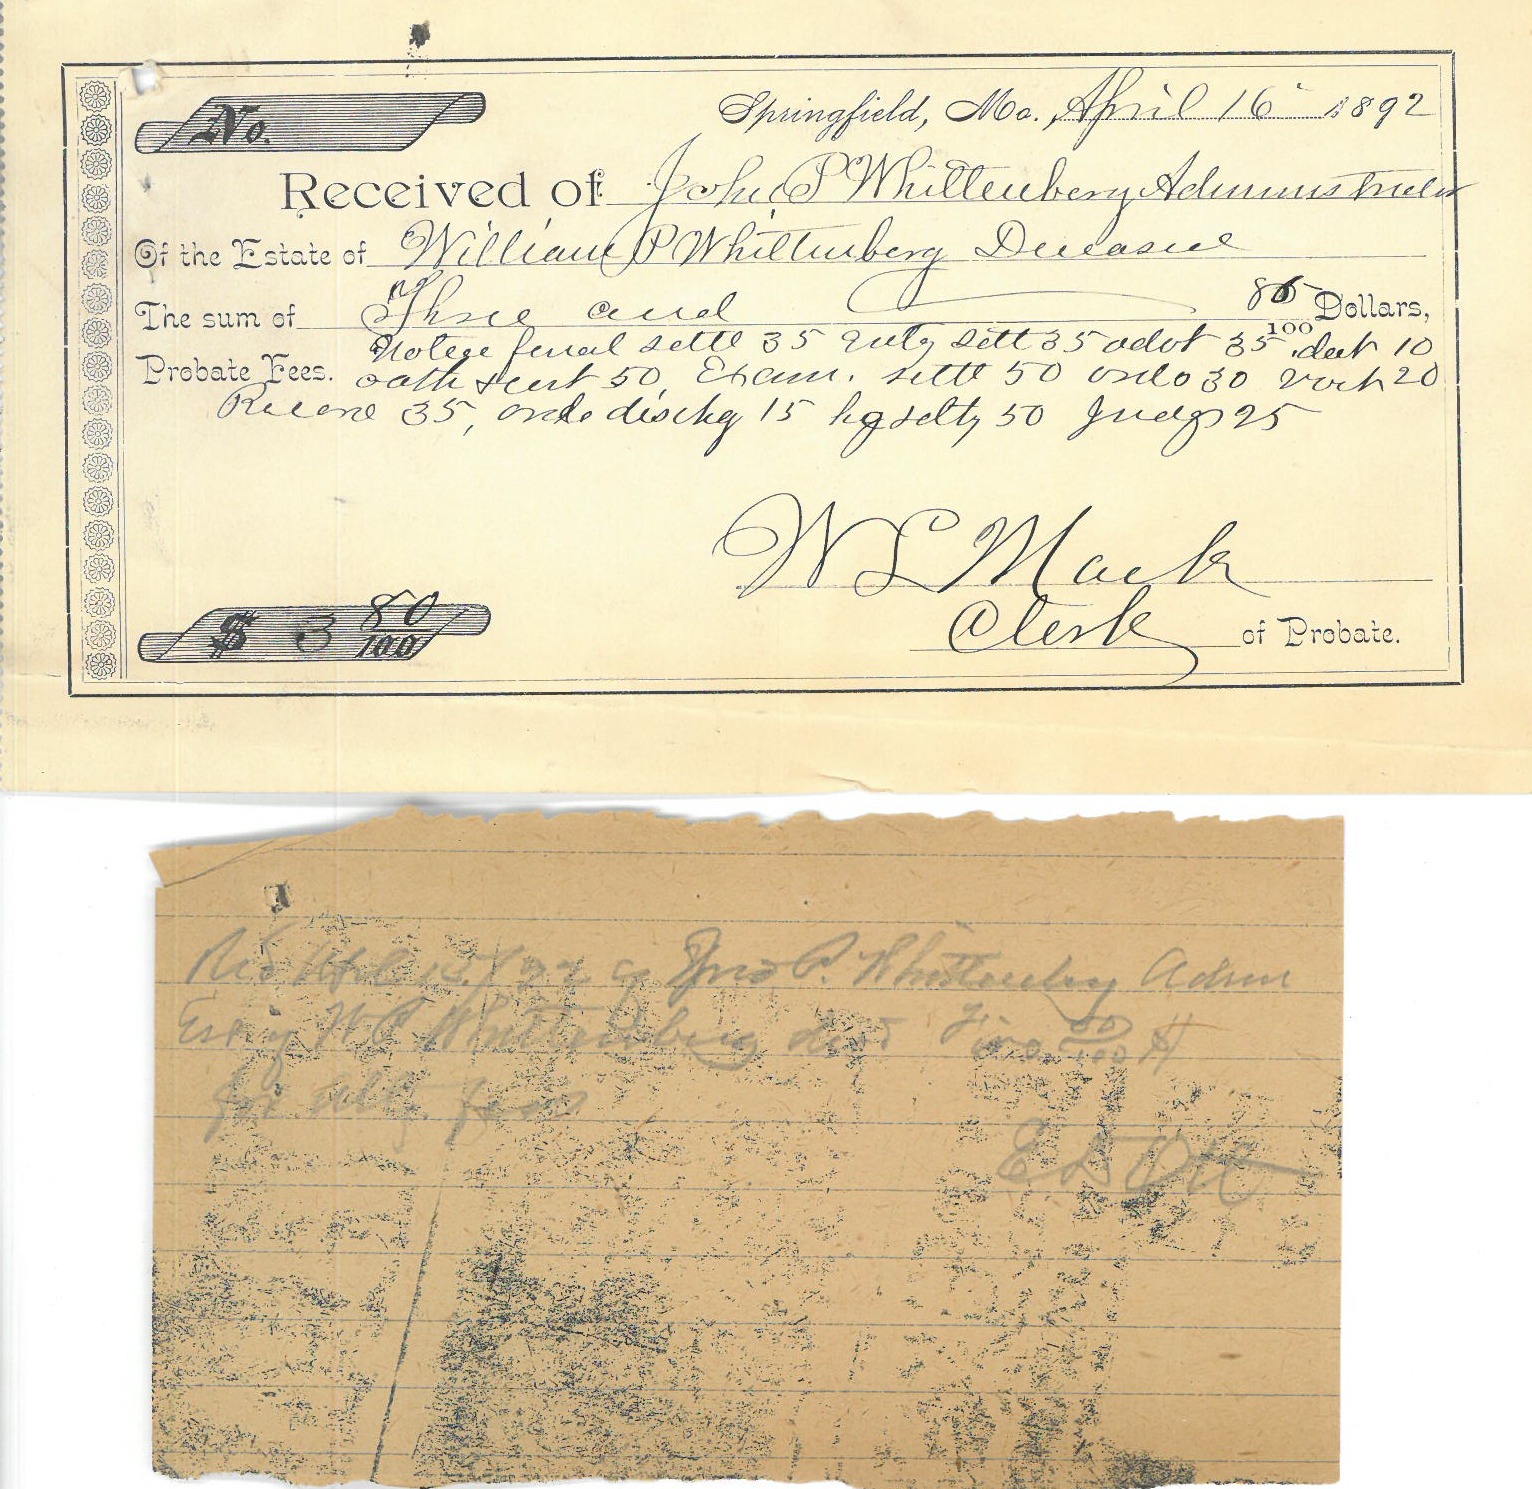 No.
Springfield, Mo., April 16 1892
Received of John P Whittenberg Administrator
Of the Estate of William P Whittenberg Deceased
The sum of Three and 80/100 Dollars,
Probate Fees. Notice final settl 35 entg sett 35 advt 35 dect 10
oath & cert 50, Exam. settl 50 order 30 vorch 20
Record 35, order dischg 15 hg settg 50 Judg 25
W L Mack
Clerk of Probate.
$ 3 80/100
Recd April 15/92 of Jno P. Whittenberg Admr
Est of W P Whittenberg decd Five 00/100 $
for atty fees